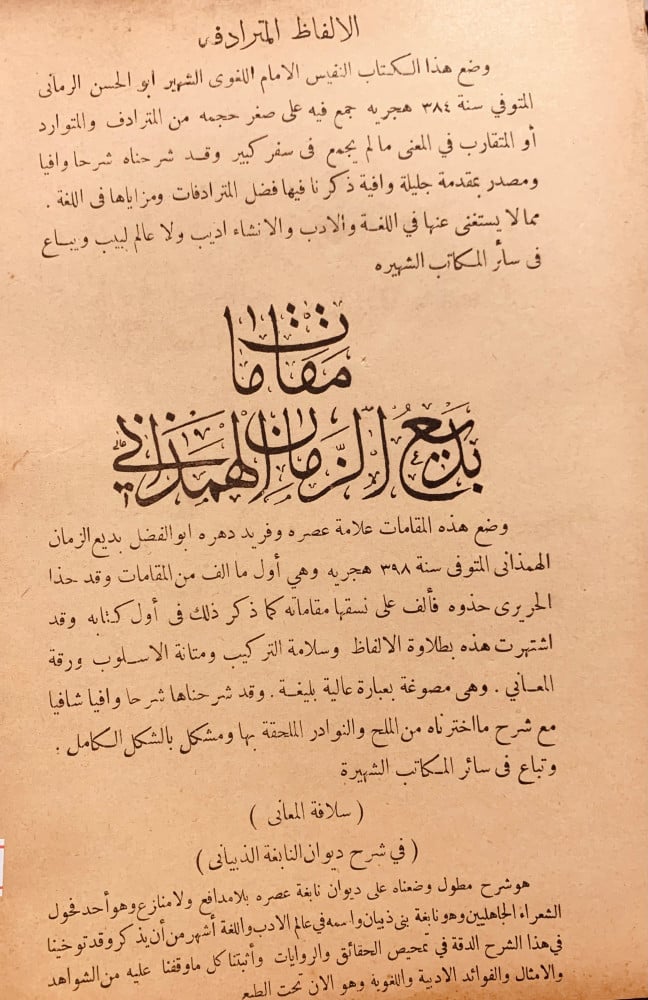 الالفاظ المترادفه
وضع هذا الكتاب النفيس الامام اللغوى الشهير ابو الحسن الرمانى
المتوفي سنة ٣٨٤ هجريه جمع فيه على صغر حجمه من المترادف والمتوارد
أو المتقارب في المعنى مالم يجمع فى سفر كبير وقد شرحناه شرحا وافيا
ومصدر بمقدمة جليلة وافية ذكرنا فيها فضل المترادفات ومزاياها فى اللغة .
مما لا يستغنى عنها في اللغة والادب والانشاء اديب ولا عالم لبيب ويباع
فى سائر المكاتب الشهيره
مقامات
بديع الزمان الهمذاني
وضع هذه المقامات علامة عصره وفريد دهره ابوالفضل بديع الزمان
الهمذانى المتوفى سنة ٣٩٨ هجريه وهي أول ما الف من المقامات وقد حذا
الحريرى حذوه فألف على نسقها مقاماته كما ذكر ذلك فى أول كتابه وقد
اشتهرت هذه بطلاوة الالفاظ وسلامة التركيب ومتانة الاسلوب ورقة
المعاني . وهى مصوغة بعبارة عالية بليغة . وقد شرحناها شرحا وافيا شافيا
مع شرح مااخترناه من الملح والنوادر الملحقة بها ومشكل بالشكل الكامل .
وتباع فى سائر المكاتب الشهيرة
( سلافة المعانى )
( في شرح ديوان النابغة الذبيانى )
هوشرح مطول وضعناه على ديوان نابغة عصره بلامدافع ولامنازع وهو أحد فحول
الشعراء الجاهليين وهو نابغة بنى ذبيان واسمه في عالم الادب واللغة أشهر من أن يذكر وقد توخينا
في هذا الشرح الدقة في تمحيص الحقائق والروايات وأثبتنا كل ماوقفنا عليه من الشواهد
والامثال والفوائد الادبية واللغوية وهو الان تحت الطبع